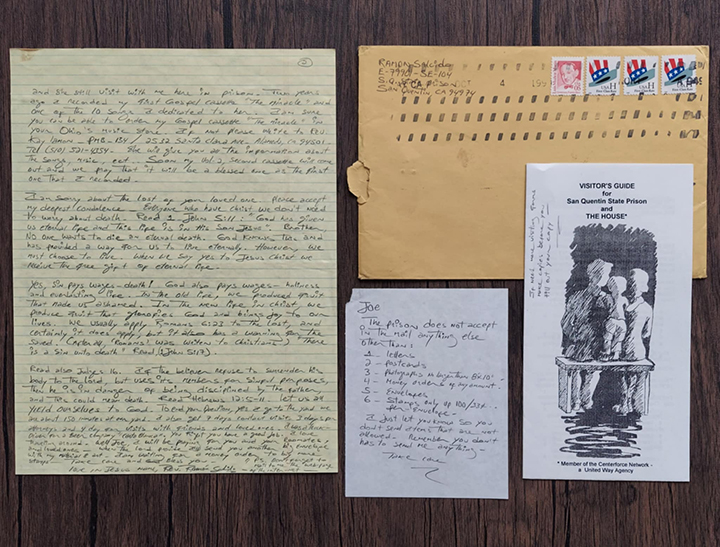 5
and she still visit with me here in prison. Two years
ago I recorded my first Gospel cassette "The Miracle" and
one of the 10 songs I dedicated to her. I am sure
you can be able to order my Gospel cassette "The Miracle" in
your Ohio's music store. If not please write to Rev.
Kay - PMB - 2532 Santa Clara Ave. Alameda, CA 94501
Tel (510) 521-4354. She will give you all the information about
the songs, music, ect. Soon my Vol. 2, second cassette will come
out and we pray that it will be a blessed one as the first
one that I recorded.
I am sorry about the lost of your loved one. Please accept
my deepest condolence. Everyone who have Christ we don't need
to worry about death. Read 1 John 5:11: "God has given
us eternal life and this life is in His Son Jesus". Brother,
No one wants to die an eternal death. God knows this and
has provided a way for us to live eternally. However, we
must choose to live. When we say yes to Jesus Christ we
receive the free gift of eternal life.
Yes, Sin pays wages - death! God also pays wages - holiness
and everlasting life. In the old life, we produced fruit
that made us ashamed. In the new life in Christ, we
produce fruit that glorifies God and brings joy to our
lives. We usually apply Romans 6:23 to the lost, and
certainly it does apply, but it also has a warning for the
saved. (After all, Romans was written to Christians) There
is a sin unto death! Read (1 John 5:17).
Read also Judges 16. If the believer refuse to surrender his
body to the Lord, but uses its members for sinful purposes,
then he is in danger of being disciplined by the Father,
and this could mean death. Read Hebrews 12:5-11. Let us all
yield ourselves to God. To end your question, yes I go to the yard we
are about 150 meters at one yard. I also get 2 days contact visits
attorneys and 4 day visits with friends and loved ones.
stamps. Take care and God bless you
love in Jesus name Rev. Ramon Salcido
RAMON Salcido
E-79901-SE-104
S.Q. State PRISON
SAN QUENTIN CA 94974
USA H
USA H
USA H
VISITOR'S GUIDE
for
San Quentin State Prison
and
THE HOUSE*
* Member of the Centerforce Network -
a United Way Agency
If need more visiting forms
make copies before you
fill out your copy
Joe
The prison does not accept
in the mail anything else
other than:
1 - letters
2 - Postcards
3 - Photographs no larger than 8x10"
4 - Money orders of any amount.
5 - Envelopes
6 - Stamps only up 100/33¢...
per Envelope -
I just let you know so you
don't send items that are not
allowed. Remember you don't
has to send me anything -
Take care